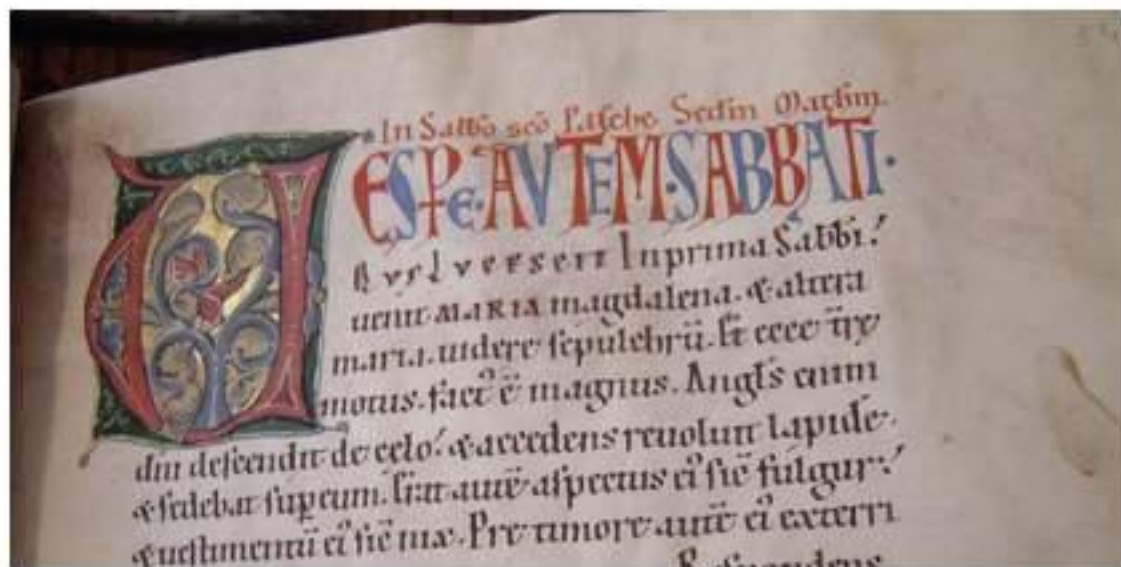 In Sabbo sco Pasche Scdm Mathm.
VESPE·AUTEM·SABBATI·
In prima Sabbi!
uenit MARIA magdalena. & altera
maria. uidere sepulchrū. Et ecce t̄re
motus. fact᾽ ē magnus. Angl̄s enim
dn̄i descendit de celo! & accedens reuoluit lapidē.
& sedebat sup eum. Erat autē aspectus ei᾽ sic̄ fulgur!
& uestimentū ei᾽ sic̄ nix. Pre timore autē ei᾽ exterri
Respondens